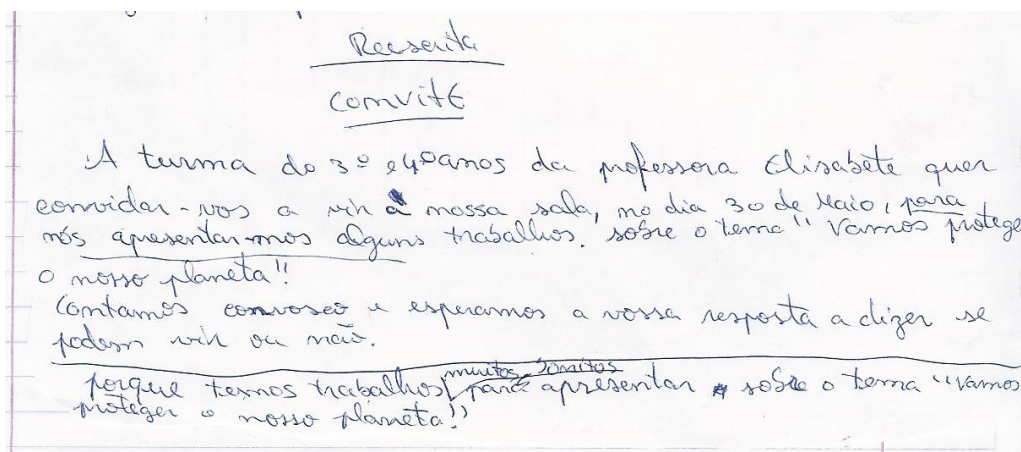 Reescrita
Convite
A turma do 3º e 4º anos da professora Elisabete quer
convidar-vos a vir à nossa sala, no dia 30 de Maio, para
nós apresentar-mos alguns trabalhos. sobre o tema "Vamos protege
o nosso planeta!!
Contamos convosco e esperamos a vossa resposta a dizer se
podem vir ou não.
muitos bonitos
porque temos trabalhos para apresentar sobre o tema "Vamos
proteger o nosso planeta!!